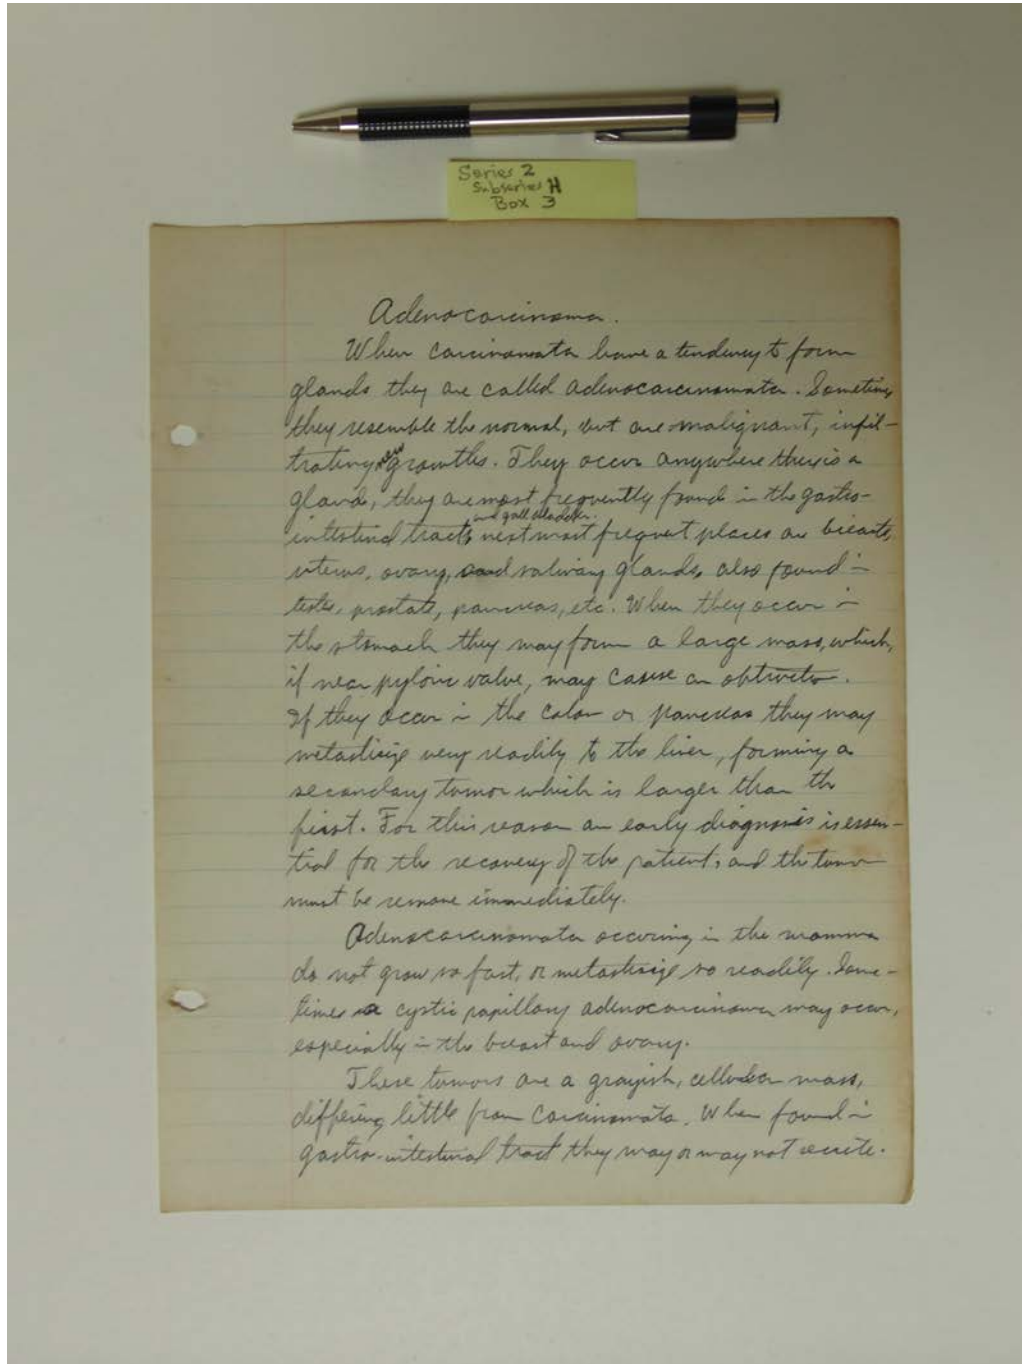 Series 2
Subseries H
Box 3
Adenocarcinoma.
When carcinomata have a tendency to form
glands they are called adenocarcinomata. Sometimes
they resemble the normal, but are malignant, infil-
trating growths. They occur anywhere there is a
gland, they are most frequently found in the gastro-
and gall bladder.
intestinal tract, next most frequent places are breasts,
uterus, ovary, and salivary glands, also found in
testes, prostate, pancreas, etc. When they occur in
the stomach they may form a large mass, which,
if near pyloric valve, may cause an obstruction.
If they occur in the colon or pancreas they may
metastisize very readily to the liver, forming a
secondary tumor which is larger than the
first. For this reason an early diagnosis is essen-
tial for the recovery of the patient, and the tumor
must be remove immediately.
Adenocarcinomata occuring in the mamma
do not grow so fast, or metastisize so readily. Some-
times a cystic papillary adenocarcinoma may occur,
especially in the breast and ovary.
These tumors are a grayish, cellular mass,
differing little from carcinomata. When found in
gastro-intestinal tract they may or may not secrete.